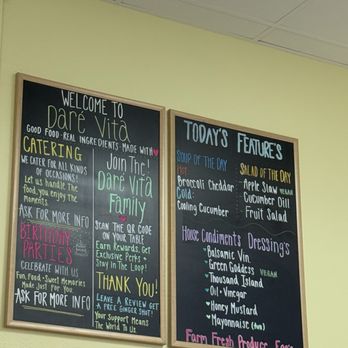 WELCOME TO
Daré Vita
GOOD FOOD · REAL INGREDIENTS · MADE WITH ♥
CATERING
WE CATER FOR ALL KINDS
OF OCCASIONS!
Let us handle the
food, you enjoy the
moments.
ASK FOR MORE INFO
BIRTHDAY
PARTIES
CELEBRATE WITH US
Fun, Food, & Sweet Memories
Made Just For You.
ASK FOR MORE INFO
JOIN THE!
Daré Vita
Family
SCAN THE QR CODE
ON YOUR TABLE
Earn Rewards, Get
Exclusive Perks +
Stay In The Loop!
THANK YOU!
LEAVE A REVIEW GET
A FREE GINGER SHOT!
Your Support Means
The World To Us
TODAY'S FEATURE'S
SOUP OF THE DAY
Hot:
Broccoli Cheddar
Cold:
Cooling Cucumber
SALAD OF THE DAY
Apple Slaw VEGAN
Cucumber Dill
Fruit Salad
House Condiments Dressing's
♥ Balsamic Vin
♥ Green Goddess VEGAN
♥ Thousand Island
♥ Oil + Vinegar
♥ Honey Mustard
♥ Mayonnaise
Farm Fresh Produce